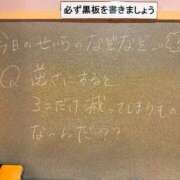 必ず黒板を書きましょう
今日のせいらのなぞなぞ…
Q 逆さにすると
3こだけ減ってしまうもの
な〜んだ???